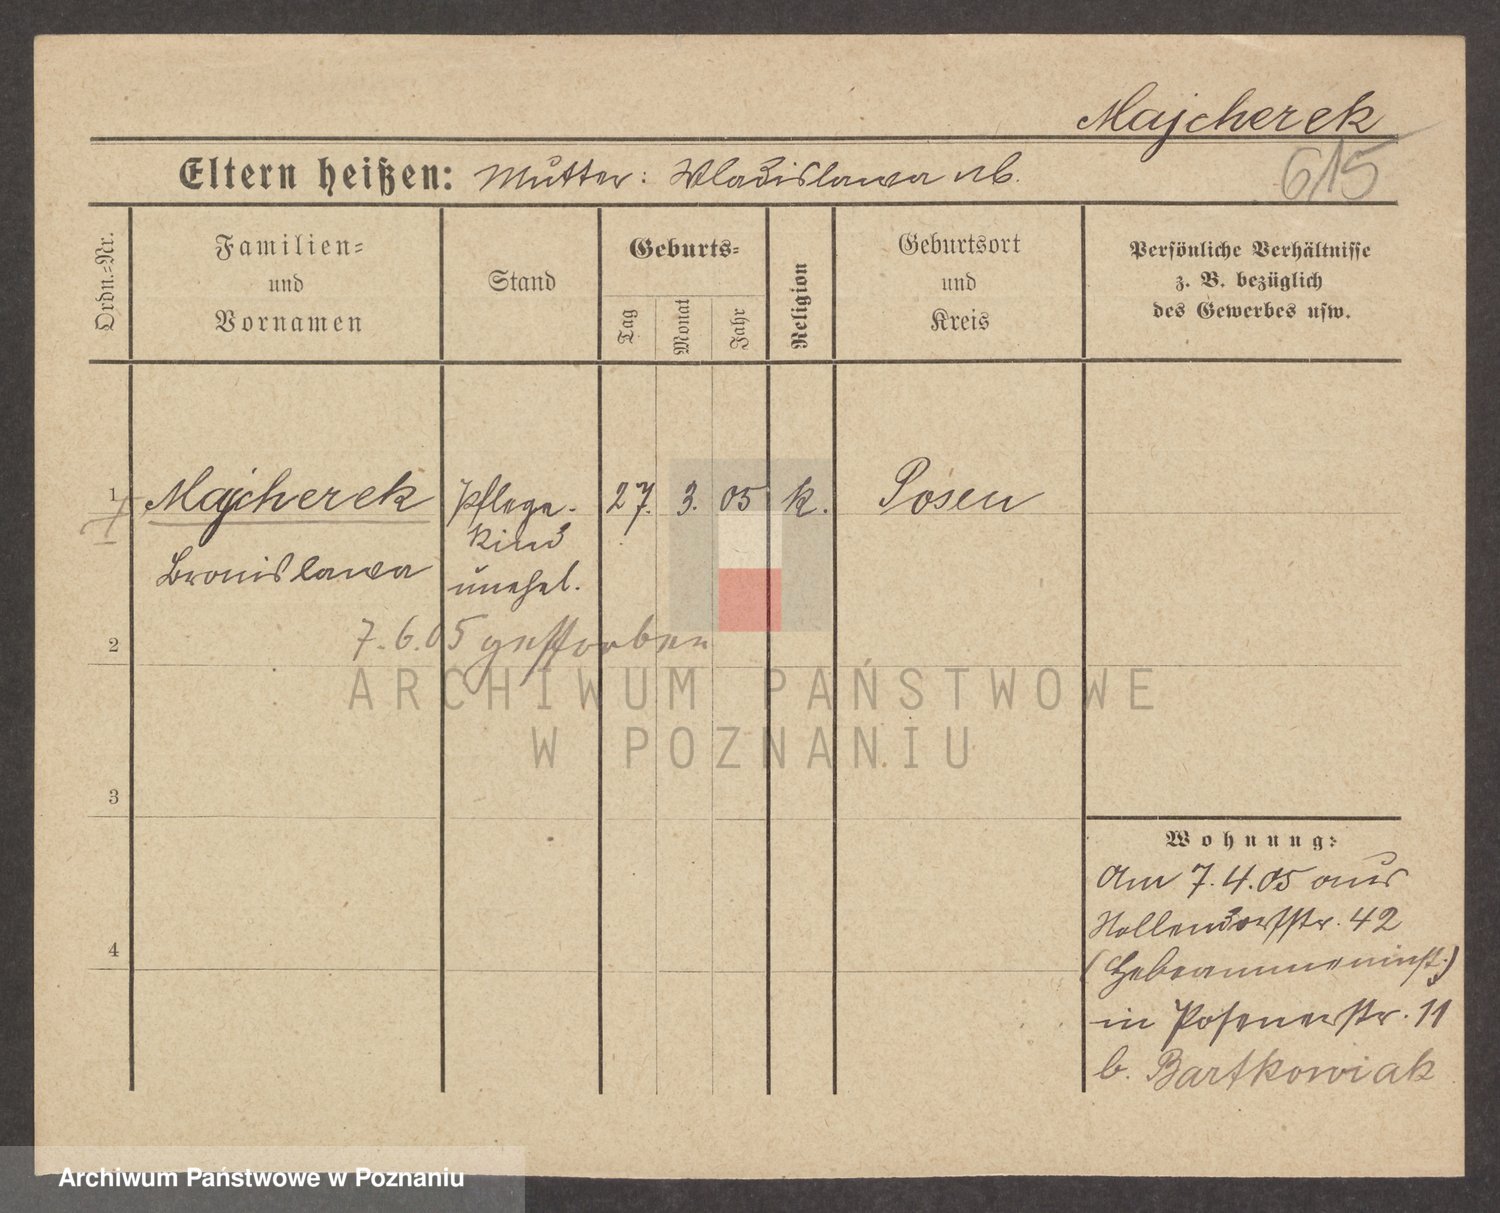 Majcherek
615
Eltern heißen: Mutter: Wladislawa
Ordn.=Nr.
Familien=
und
Vornamen
Stand
Geburts=
Tag
Monat
Jahr
Religion
Geburtsort
und
Kreis
Persönliche Verhältnisse
z. B. bezüglich
des Gewerbes usw.
1 Majcherek Pflege- 27. 3. 05 k. Posen
kind
Bronislawa unehel.
7.6.05 gestorben
2
3
4
Wohnung:
Am 7.4.05 aus
Nollendorfstr. 42
(Hebammeninst.)
in Posenerstr. 11
b. Bartkowiak
ARCHIWUM PAŃSTWOWE
W POZNANIU
Archiwum Państwowe w Poznaniu